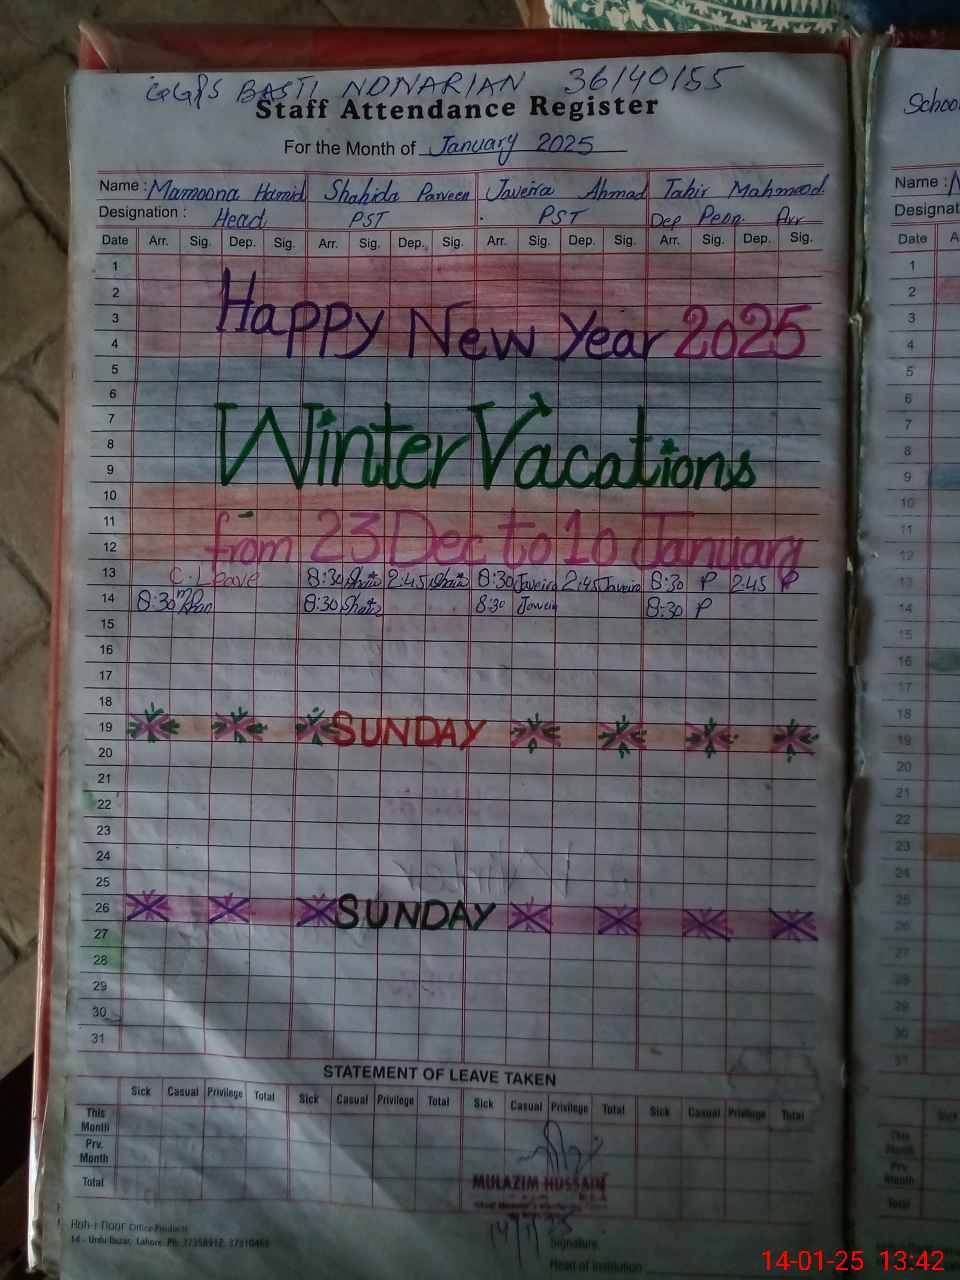 GGPS BASTI NONARIAN 36140155
Staff Attendance Register
For the Month of January 2025
Name : Mamoona Hamid Shahida Parveen Javeria Ahmad Tahir Mahmood
Designation : Head PST PST
Date Arr. Sig. Dep. Sig. Arr. Sig. Dep. Sig. Arr. Sig. Dep. Sig. Arr. Sig. Dep. Sig.
1
2
3
4
Happy New Year 2025
5
6
7
8
9
Winter Vacations
10
11
12
from 23 Dec to 10 January
13 C. Leave 8:30 2:45 8:30 Javeria 2:45 Javeria 8:30 P 2:45 P
14 8:30 8:30 8:30 8:30 P
15
16
17
18
19 SUNDAY
20
21
22
23
24
25
26 SUNDAY
27
28
29
30
31
STATEMENT OF LEAVE TAKEN
Sick Casual Privilege Total Sick Casual Privilege Total Sick Casual Privilege Total Sick Casual Privilege Total
This Month
Prv. Month
Total
MULAZIM HUSSAIN
Koh-i-Noor Office Products
14 - Urdu Bazar, Lahore. Ph: 37358912, 37310468
Signature
Head of Institution
14-01-25 13:42
Name :
Date
1
2
3
4
5
6
7
8
9
10
11
12
13
14
15
16
17
18
19
20
21
22
23
24
25
26
27
28
29
30
31